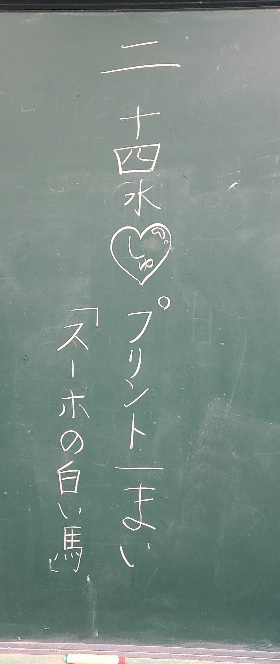 二 十四 水 しゅ プリント一まい
「スーホの白い馬」